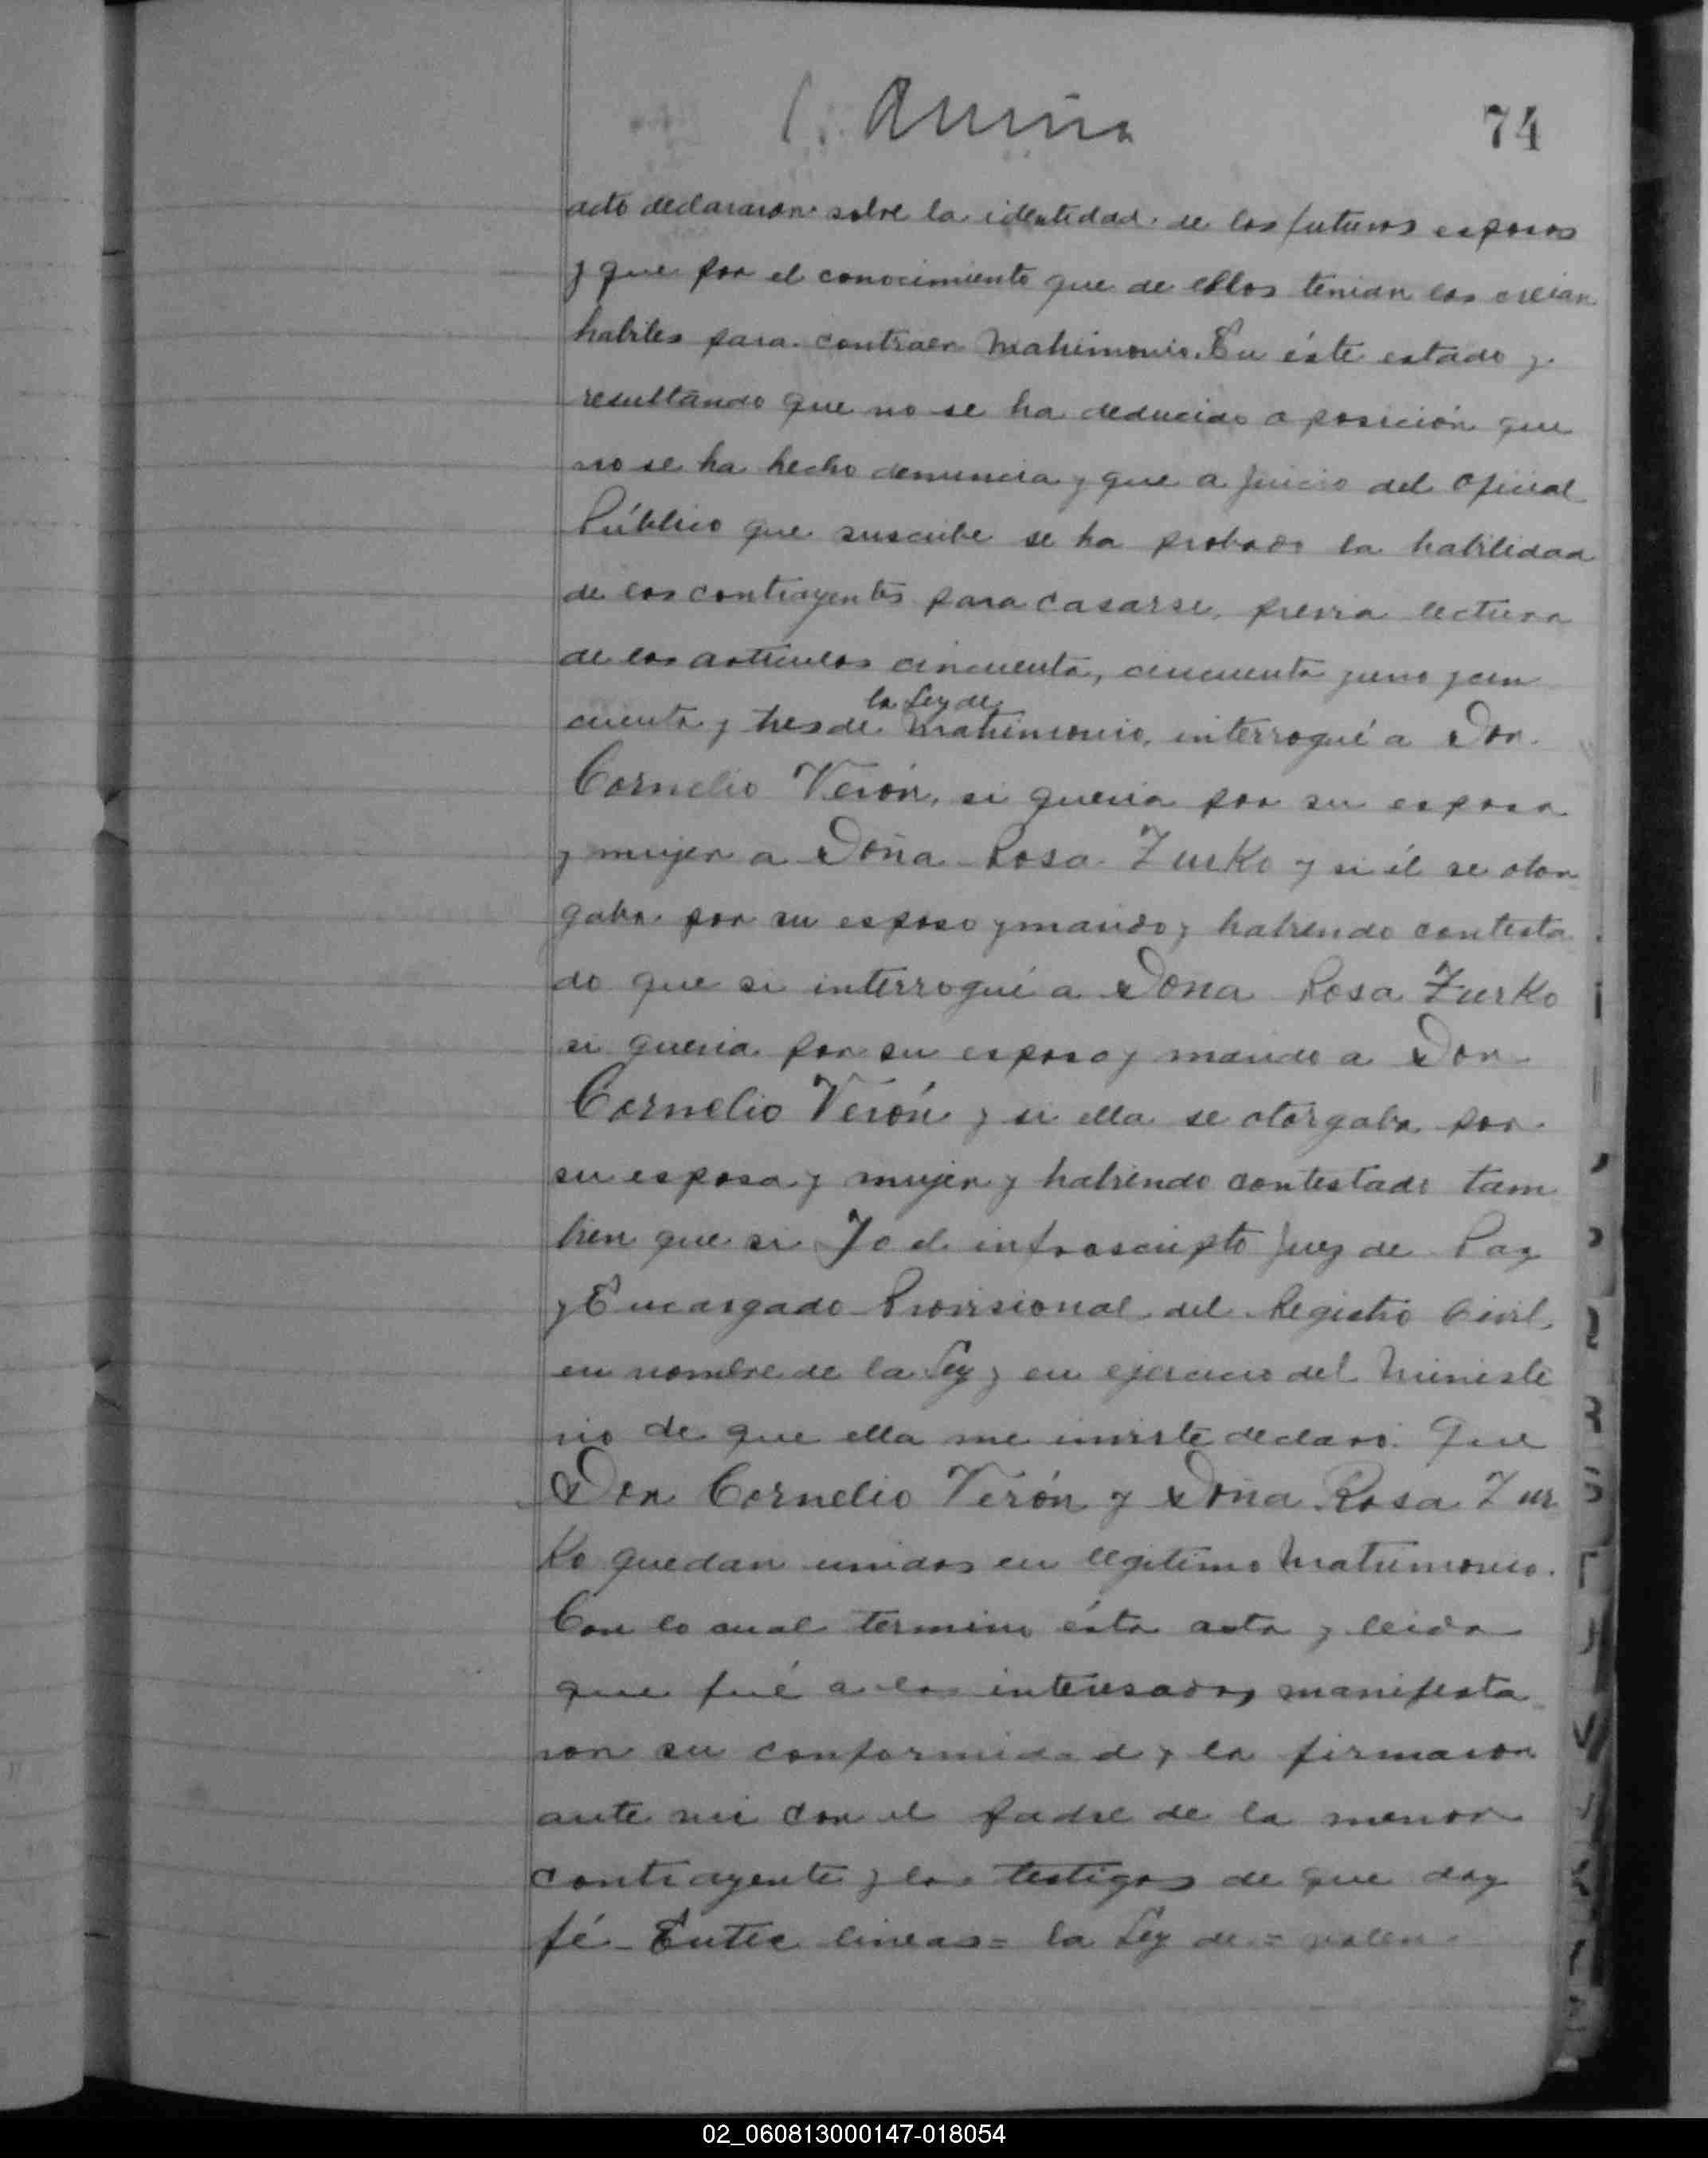 74
acto declararon sobre la identidad de los futuros esposos
y que por el conocimiento que de ellos tenian los creian
habiles para contraer Matrimonio. En éste estado y
resultando que no se ha deducido oposición que
no se ha hecho denuncia y que a juicio del Oficial
Público que suscribe se ha probado la habilidad
de los contrayentes para casarse, previa lectura
de los articulos cincuenta, cincuenta y uno y cin
la Ley de
cuenta y tres de Matrimonio, interrogué a Don
Cornelio Verón, si queria por su esposa
y mujer a Doña Rosa Zurko y si él se otor
gaba por su esposo y marido y habiendo contesta
do que si interrogué a Dona Rosa Zurko
si queria por su esposo y marido a Don
Cornelio Verón y si ella se otorgaba por
su esposa y mujer y habiendo contestado tam
bien que si Yo el infrascripto Juez de Paz
y Encargado Provisional del Registro Civil,
en nombre de la Ley y en ejercicio del Ministe
rio de que ella me inviste declaro: Que
Don Cornelio Verón y Doña Rosa Zur
Ko quedan unidos en legitimo Matrimonio.
Con lo cual termino ésta acta y leida
que fué a los interesados manifesta
ron su conformidad y la firmaron
ante mi con el padre de la menor
contrayente y los testigos de que doy
fé - Entre lineas = la Ley de = valen
02_060813000147-018054